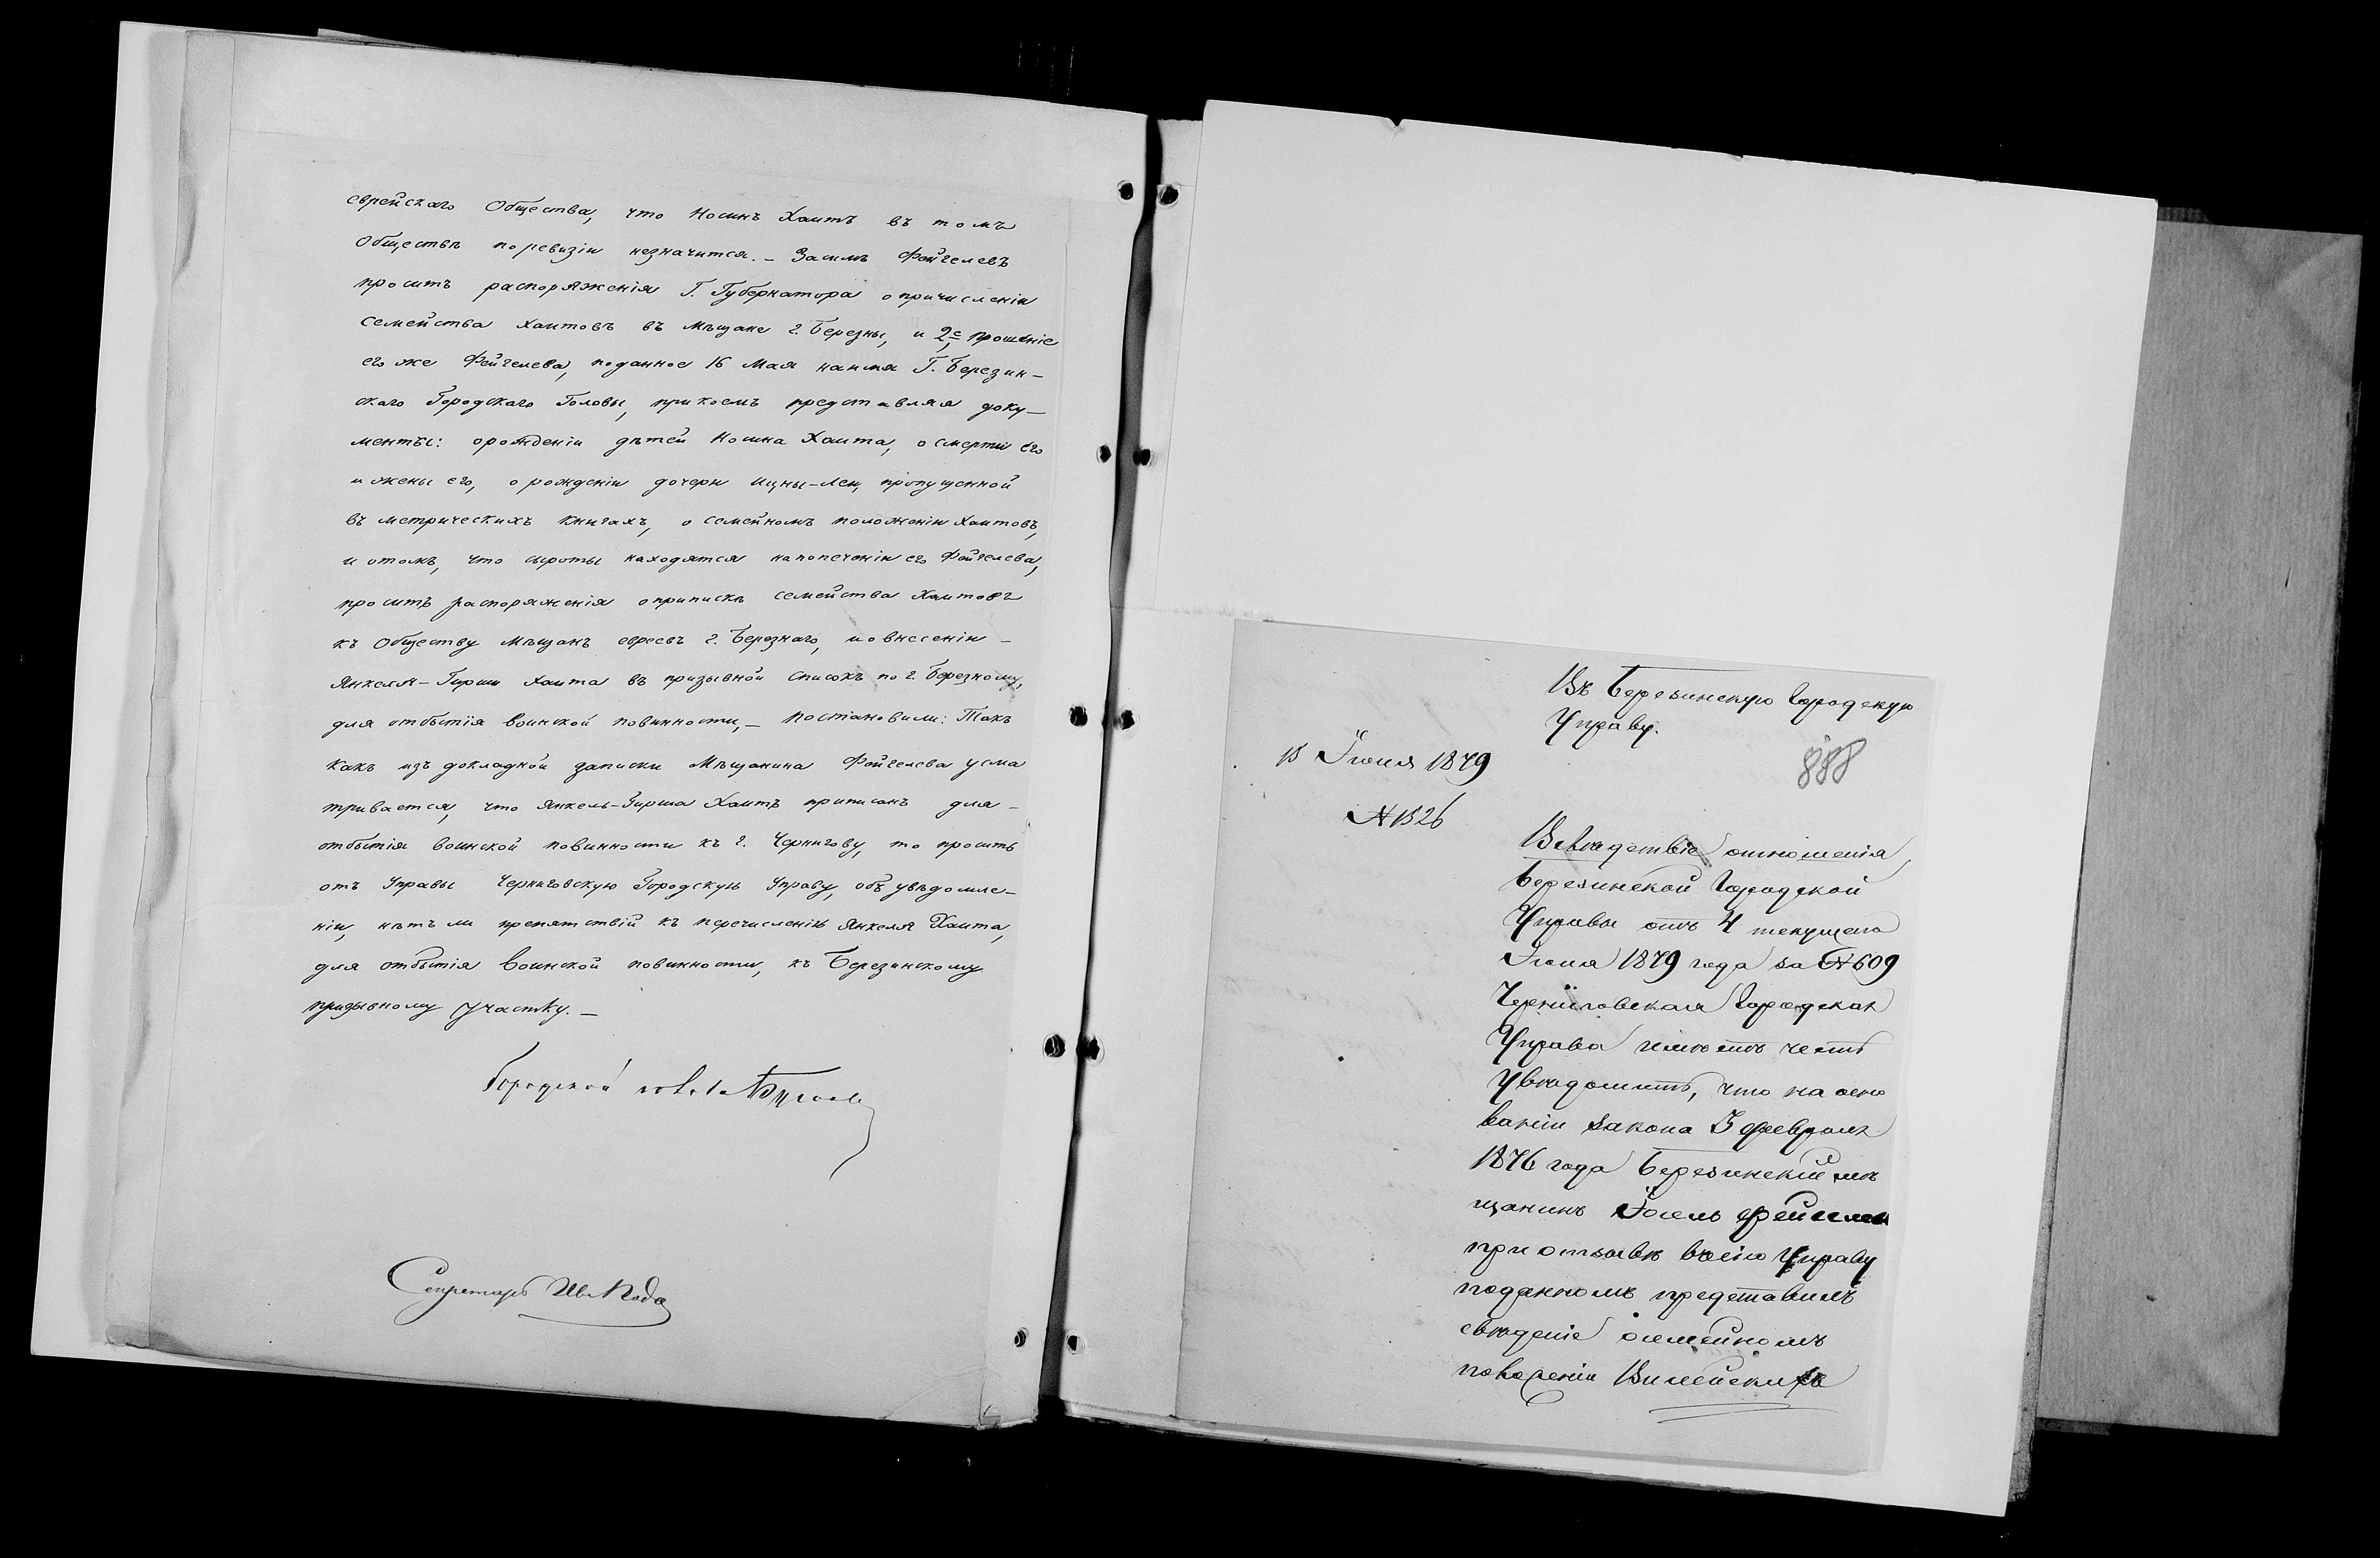 еврейскаго Общества, что Носинъ Хаитъ въ томъ
Обществѣ поревизіи незначится. – Засимъ Фейгелевъ
проситъ распоряженія Г. Губернатора опричисленіи
семейства Хаитовъ въ мѣщане г. Березны, и 2е, прошеніе
его же Фейгелева, поданное 16 Мая наимя Г. Березин–
скаго Городскаго Головы, прикоемъ представляя доку–
менты: орожденіи дѣтей Носина Хаита, о смерти его
и жены его, о рожденіи дочери Ицны-Леи, пропущенной
въ метрическихъ книгахъ, о семейномъ положеніи Хаитовъ,
и отомъ, что сироты находятся напопеченіи его Фейгелева,
проситъ распоряженія оприпискѣ семейства Хаитовъ
къ Обществу мѣщанъ евреевъ г. Березнаго, и овнесеніи –
Янкеля-Гирши Хаита въ призывной списокъ по г. Березному,
для отбытія воинской повинности, – постановили: Такъ
какъ изъ докладной записки Мѣщанина Фейгелева усма
тривается, что Янкель-Гирша Хаитъ приписанъ для –
отбытія воинской повинности къ г. Чернигову, то просить
отъ Управы Черниговскую Городскую Управу, объ увѣдомле–
ніи, нѣтъ ли препятствій къ перечисленію Янкеля Хаита,
для отбытія воинской повинности, къ Березинскому
призывному участку. –
Городской голова
Секретарь
Въ Березинскую Городскую
Управу.
888
15 Іюня 1879
№ 1526
Вслѣдствіе отношенія
Березинской Городской
Управы отъ 4 текущаго
Іюня 1879 года за № 609
Черниговская Городская
Управа имѣетъ честь
увѣдомить, что на осно
ваніи закона 3 февраля
1876 года Березинскій мѣ
щанинъ Іосель Фейгелев
при отзывѣ въ сію Управу
поданномъ представилъ
свѣденіе осемейномъ
положеніи Вилейскихъ